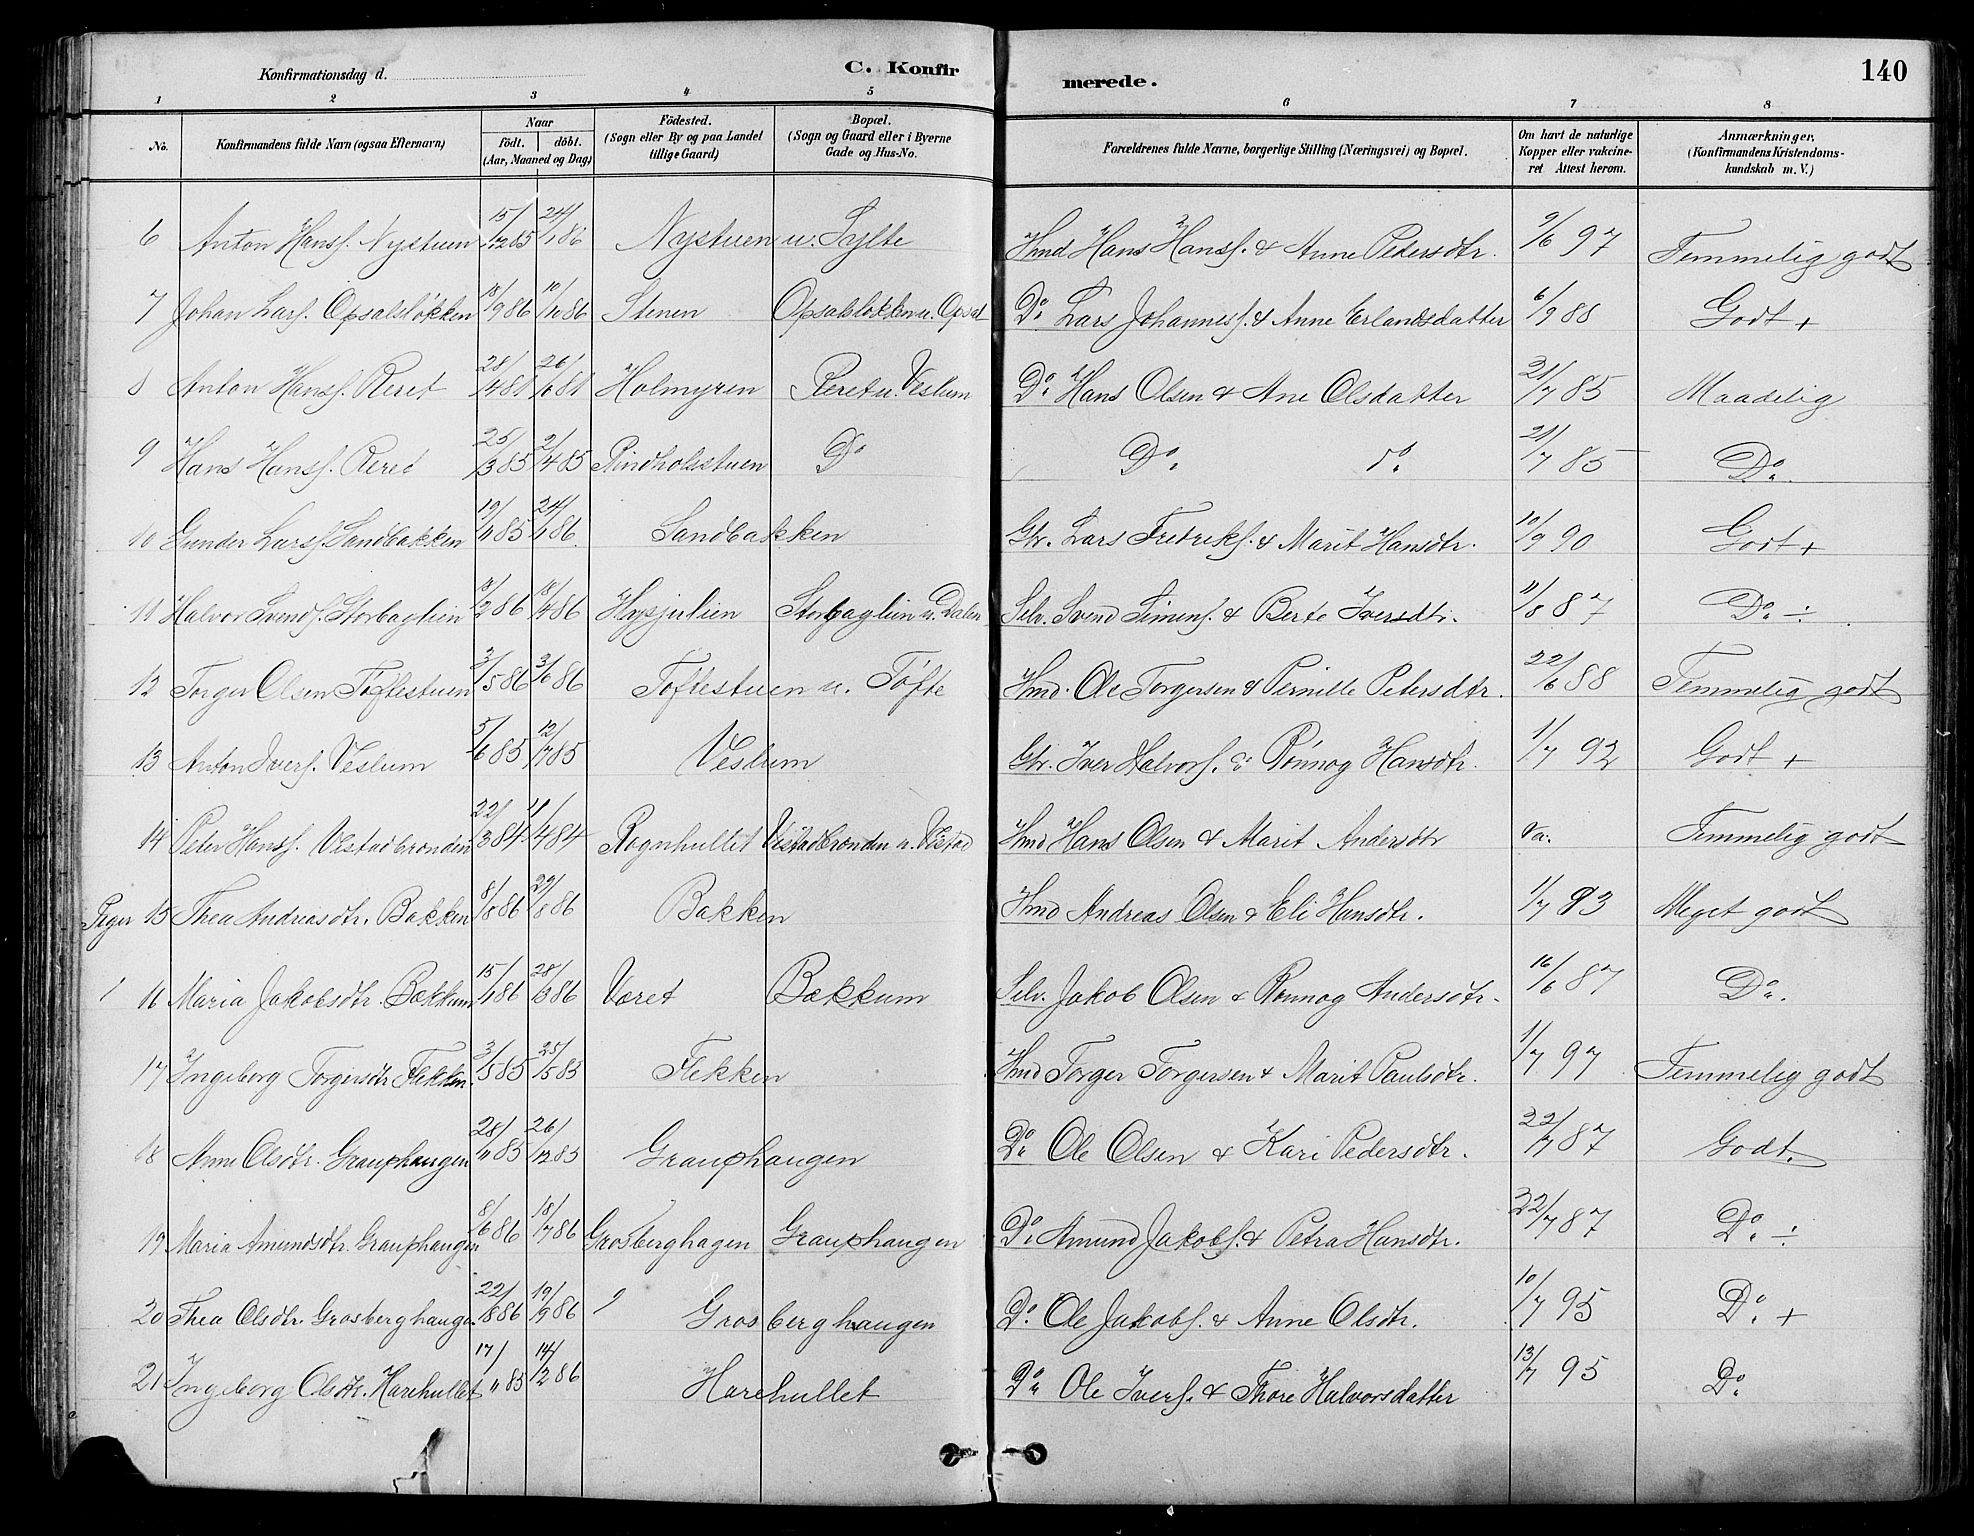 Konfirmationsdag d. C. Konfirmerede. 140
1 2 3 4 5 6 7 8
No. Konfirmandens fulde Navn (ogsaa Efternavn) Naar födt. döbt. (Aar, Maaned og Dag) Födested. (Sogn eller By og paa Landet tillige Gaard) Bopæl. (Sogn og Gaard eller i Byerne Gade og Hus-No. Forældrenes fulde Navne, borgerlige Stilling (Næringsvei) og Bopæl. Om havt de naturlige Kopper eller vakcineret Attest herom. Anmærkninger. (Konfirmandens Kristendomskundskab m. V.)
6 Anton Hansf. Nystuen 15/12 85 24/1 86 Nystuen u. Sylte Hmd Hans Hansf. & Anne Pedersdtr. 9/6 97 Temmelig godt
7 Johan Larsf. Opsalsløkken 18/9 86 10/10 86 Stenen Opsalsløkken u. Opsal Do. Lars Johannesf. & Anne Erlandsdatter 6/9 88 Godt +
8 Anton Hansf. Reret 28/4 81 26/6 81 Holmyren Reret u. Veslum Do. Hans Olsen & Ane Olsdatter 21/7 85 Maadelig
9 Hans Hansf. Reret 25/3 85 2/4 85 Rindholsstuen Do Do. do. 21/7 85 Do.
10 Gunder Larsf. Sandbakken 19/11 85 24/1 86. Sandbakken Gbr. Lars Fredriksf. & Marit Hansdtr. 10/9 90 Godt +
11 Halvor Svendsf. Storbaglien /2 86 18/4 86 Storbaglien u. Dalen Selv. Svend Simensf. & Berte Iversdtr. 11/8 87 Do. ÷
12 Torger Olsen Tøftestuen 3/5 86 3/6 86 Tøftestuen u. Tøfte Hmd. Ole Torgersen & Pernille Petersdtr. 22/6 88 Temmelig godt
13 Anton Iversf. Veslum 5/6 85 12/7 85 Veslum Gbr. Iver Halvorsf. & Rønnog Hansdtr. 1/7 92 Godt +
14 Peter Hansf. Vistadbronden 22/3 84 11/4 84 Rognhullet Vistadbronden u. Vistad Hmd Hans Olsen & Marit Andersdtr Va. Temmelig godt
Piger 15 Thea Andreasdtr. Bakken 8/8 86 29/8 86 Bakken Hmd Andreas Olsen & Eli Hansdtr. 1/7 93 Meget godt
1 16 Maria Jakobsdtr. Bækkum 15/1 86 28/3 86 Været Bækkum Selv. Jakob Olsen & Rønnog Andersdtr. 16/6 87 Do.
17 Ingeborg Torgersdtr Flekken 3/5 85 25/5 85 Flekken Hmd Torger Torgersen & Marit Paulsdtr. 1/7 97 Temmelig godt
18 Anne Olsdtr. Grauphaugen 28/11 85 26/12 85 Grauphaugen Do. Ole Olsen & Kari Pedersdtr. 22/7 87 Godt.
19 Maria Amundsdtr. Grauphaugen 8/6 86 18/7 86 Grosberghagen Grauphaugen Do. Amund Jakobsf. & Petra Hansdtr. 22/7 87 Do. ÷
20 Thea Olsdtr. Grosberghaugen 22/8 86 19/9 86 Grosberghaugen Do. Ole Jakobsf. & Anne Olsdtr. 10/7 95 Do. +
21 Ingeborg Olsdtr. Harehullet 17/11 85 14/2 86 Harehullet Do. Ole Iversf. & Thore Halvorsdatter 13/7 95 Do.